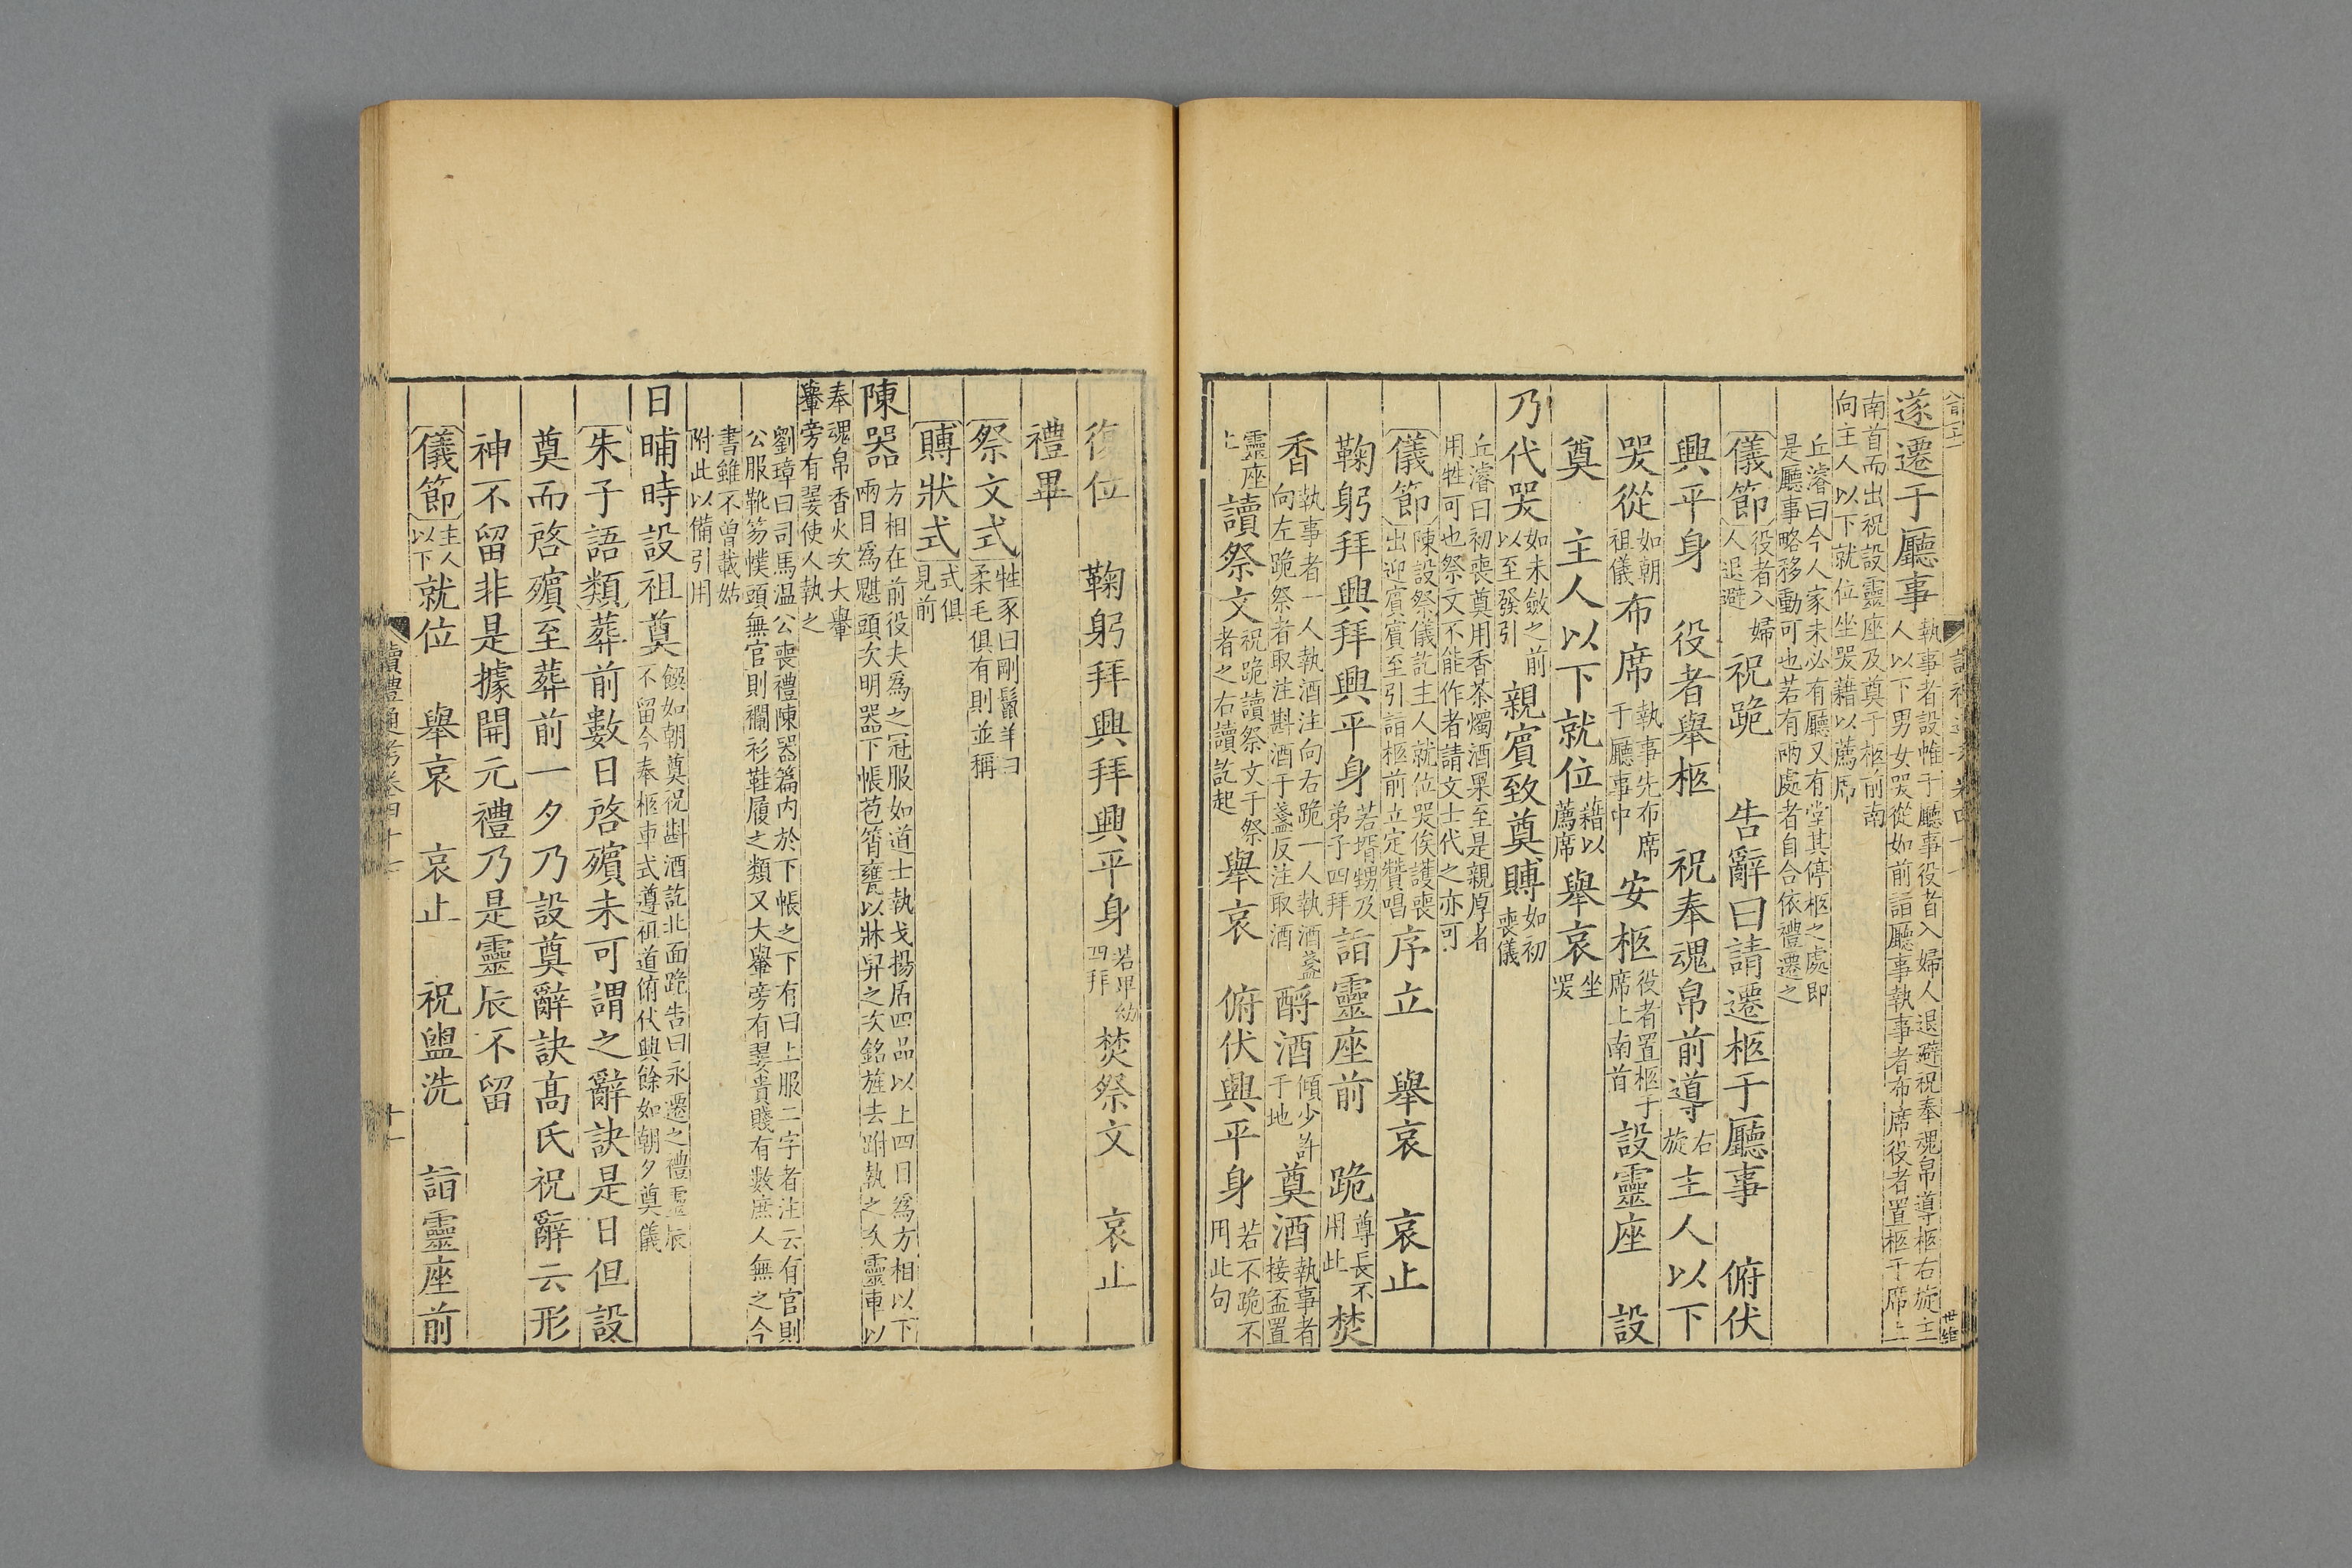 遂遷于廳事執事者設帷于廳事役者入婦人退避祝奉魂帛導柩右旋主人以下男女哭從如前詣廳事執事者布席役者置柩于席上
南首而出祝設靈座及奠于柩前南向主人以下就位坐哭藉以薦席
丘濬曰今人家未必有廳又有堂其停柩之處即是廳事略移動可也若有兩處者自合依禮遷之
儀節役者入婦人退避 祝跪 告辭曰請遷柩于廳事 俯伏
興平身 役者舉柩 祝奉魂帛前導右旋主人以下
哭從如朝祖儀布席執事先布席于廳事中 安柩役者置柩于席上南首 設靈座 設
奠 主人以下就位藉以薦席舉哀坐哭
乃代哭如未斂之前以至發引 親賓致奠賻如初喪儀
丘濬曰初喪奠用香茶燭酒果至是親厚者用牲可也祭文不能作者請文士代之亦可
儀節陳設祭儀訖主人就位哭俟護喪出迎賓賓至引詣柩前立定贊唱序立 舉哀 哀止
鞠躬拜興拜興平身若壻甥及弟子四拜詣靈座前 跪尊長不用此焚
香執事者一人執酒注向右跪一人執酒盞向左跪祭者取注斟酒于盞反注取酒 酹酒傾少許于地 奠酒執事者接盃置
靈座上讀祭文祝跪讀祭文于祭者之右讀訖起 舉哀 俯伏興平身若不跪不用此句
復位 鞠躬拜興拜興平身若卑幼四拜焚祭文 哀止
禮畢
祭文式牲豕曰剛鬛羊曰柔毛俱有則並稱
賻狀式式俱見前
陳器方相在前役夫爲之冠服如道士執戈揚盾四品以上四目爲方相以下兩目爲魌頭次明器下帳苞筲甕以牀舁之次銘旌去跗執之次靈車以
奉魂帛香火次大轝轝旁有翣使人執之
劉璋曰司馬温公喪禮陳器篇内於下帳之下有曰上服二字者注云有官則公服靴笏幞頭無官則襴衫鞋履之類又大轝旁有翣貴賤有數庶人無之今
書雖不曾載姑附此以備引用
日晡時設祖奠饌如朝奠祝斟酒訖北面跪告曰永遷之禮靈辰不留今奉柩車式遵祖道俯伏興餘如朝夕奠儀
朱子語類葬前數日啓殯未可謂之辭訣是日但設
奠而啓殯至葬前一夕乃設奠辭訣高氏祝辭云形
神不留非是據開元禮乃是靈辰不留
儀節主人以下就位 舉哀 哀止 祝盥洗 詣靈座前
讀禮通考卷四十七 十一